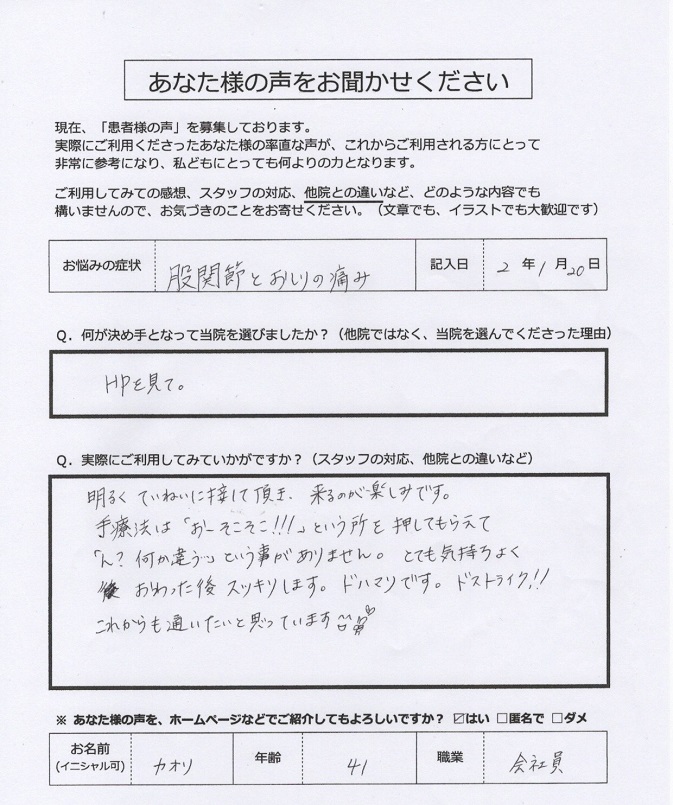 あなた様の声をお聞かせください
現在、「患者様の声」を募集しております。
実際にご利用くださったあなた様の率直な声が、これからご利用される方にとって
非常に参考になり、私どもにとっても何よりの力となります。
ご利用してみての感想、スタッフの対応、他院との違いなど、どのような内容でも
構いませんので、お気づきのことをお寄せください。（文章でも、イラストでも大歓迎です）
お悩みの症状 股関節とおしりの痛み 記入日 2 年 1 月 20 日
Q．何が決め手となって当院を選びましたか？（他院ではなく、当院を選んでくださった理由）
HPを見て。
Q．実際にご利用してみていかがですか？（スタッフの対応、他院との違いなど）
明るく ていねいに接して頂き、来るのが楽しみです。
手療法は「おーそこそこ!!!」という所を押してもらえて
「ん？何か違う…」という事がありません。とても気持ちよく
おわった後スッキリします。ドハマリです。ドストライク!!
これからも通いたいと思っています
※ あなた様の声を、ホームページなどでご紹介してもよろしいですか？ ☑はい □匿名で □ダメ
お名前 カオリ 年齢 41 職業 会社員
（イニシャル可）